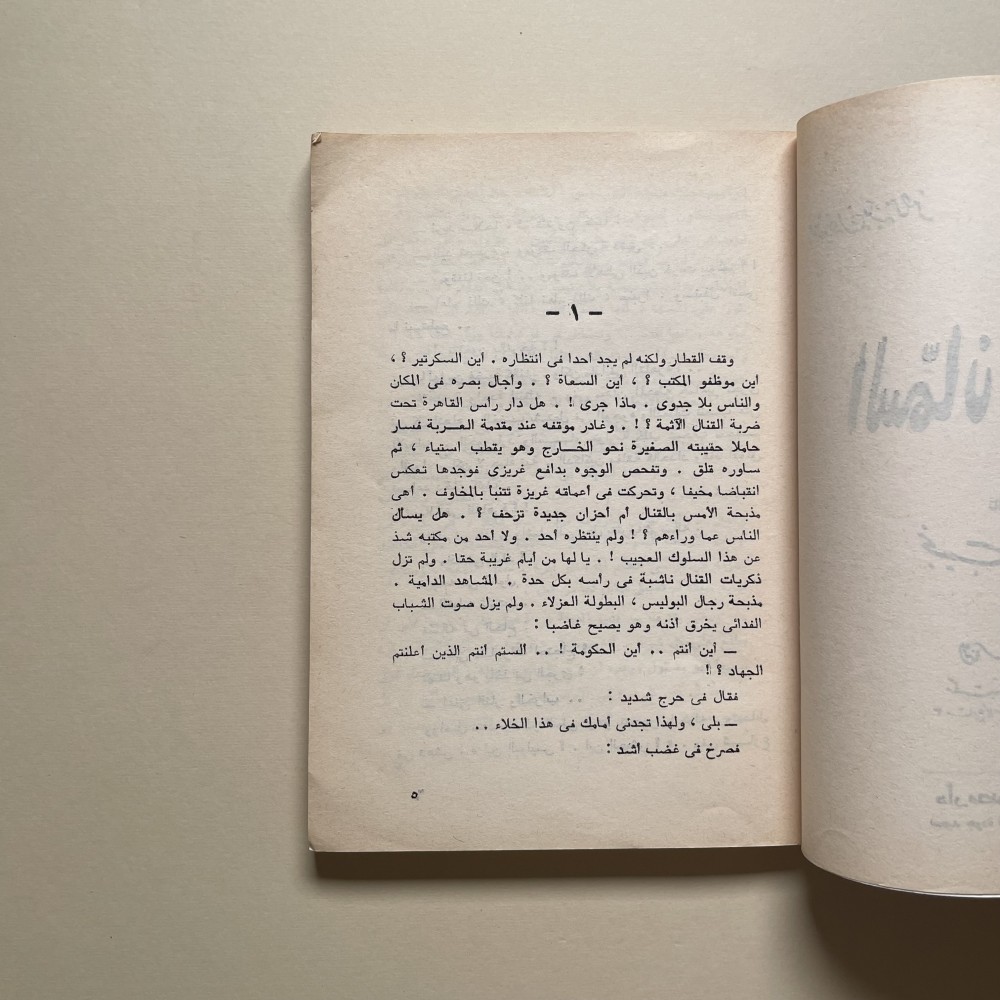 – ١ –
وقف القطار ولكنه لم يجد أحدا فى انتظاره . أين السكرتير ؟ ،
أين موظفو المكتب ؟ ، أين السعاة ؟ . وأجال بصره فى المكان
والناس بلا جدوى . ماذا جرى ! . هل دار رأس القاهرة تحت
ضربة القنال الآثمة ؟ ! . وغادر موقفه عند مقدمة العربة فسار
حاملا حقيبته الصغيرة نحو الخارج وهو يقطب استياء ، ثم
ساوره قلق . وتفحص الوجوه بدافع غريزى فوجدها تعكس
انقباضا مخيفا ، وتحركت فى أعماقه غريزة تتنبأ بالمخاوف . أهى
مذبحة الأمس بالقنال أم أحزان جديدة تزحف ؟ . هل يسأل
الناس عما وراءهم ؟ ! ولم ينتظره أحد . ولا أحد من مكتبه شذ
عن هذا السلوك العجيب ! . يا لها من أيام غريبة حقا . ولم تزل
ذكريات القنال ناشبة فى رأسه بكل حدة . المشاهد الدامية .
مذبحة رجال البوليس ، البطولة العزلاء . ولم يزل صوت الشباب
الفدائى يخرق أذنه وهو يصيح غاضبا :
ــ أين أنتم .. أين الحكومة ! .. ألستم أنتم الذين أعلنتم
الجهاد ؟ !
فقال فى حرج شديد :
ــ بلى ، ولهذا تجدنى أمامك فى هذا الخلاء ..
فصرخ فى غضب أشد :
٥